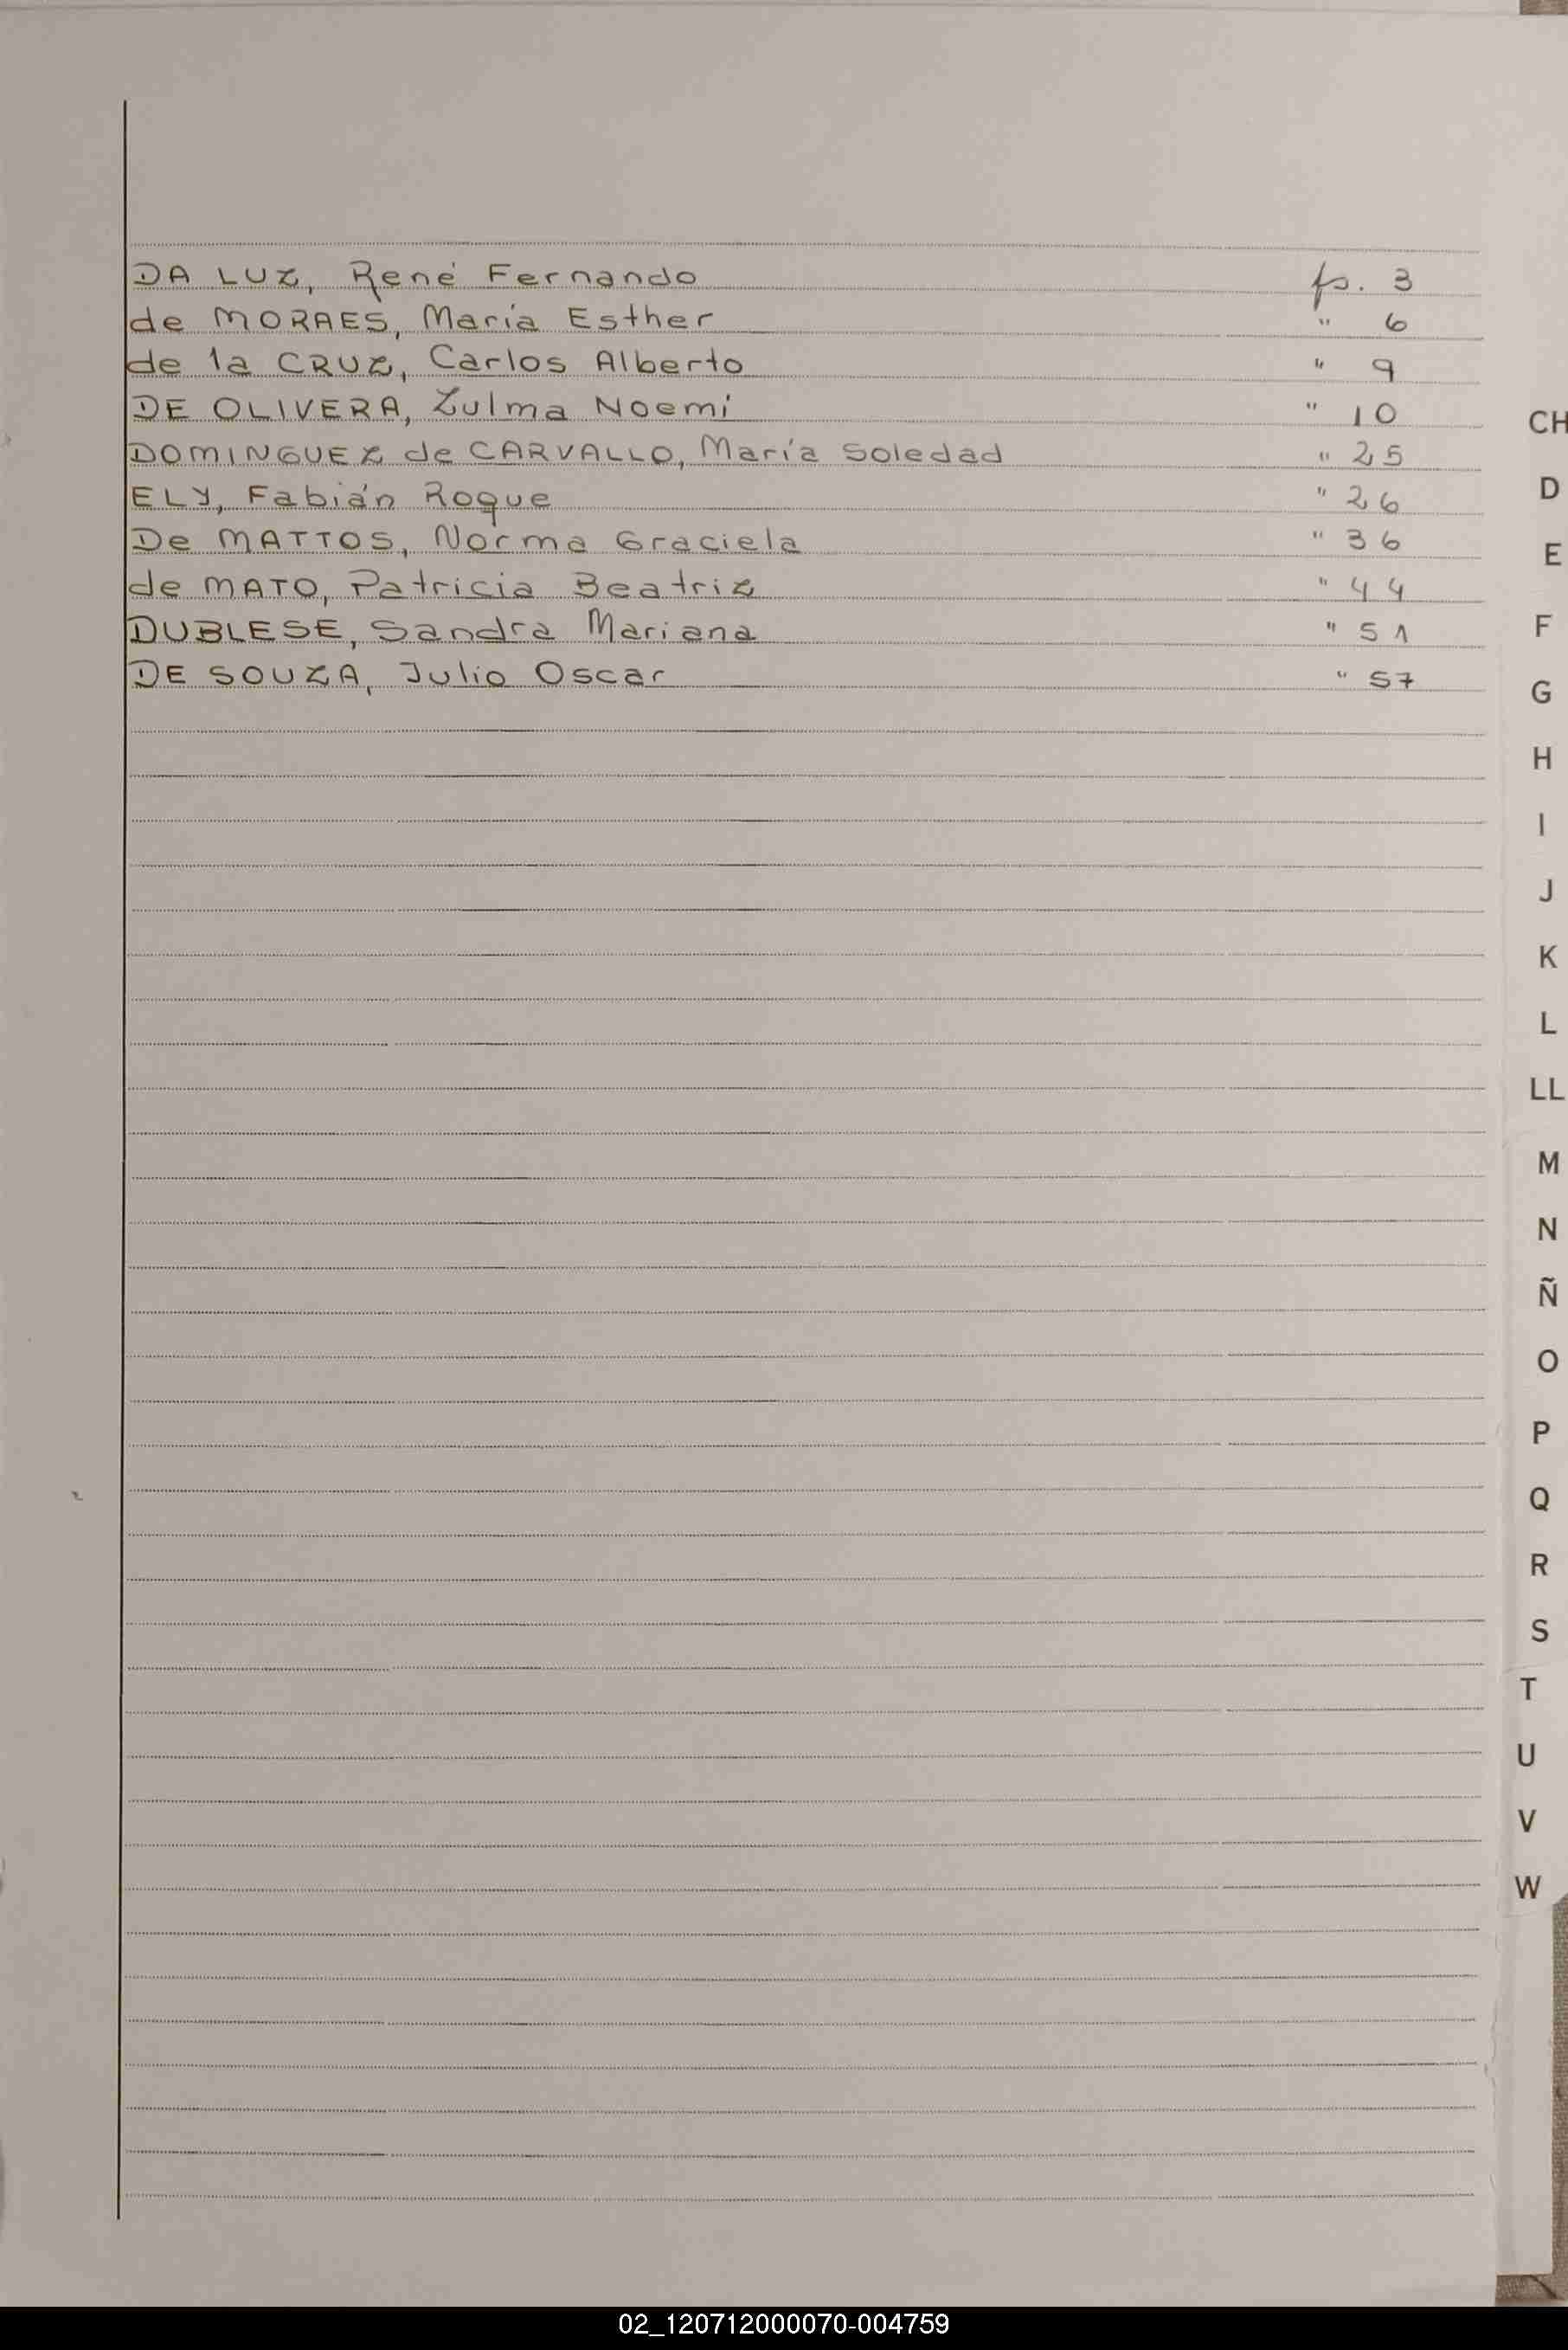 DA LUZ, René Fernando fs. 3
de MORAES, María Esther " 6
de la CRUZ, Carlos Alberto " 9
DE OLIVERA, Zulma Noemí " 10
DOMINGUEZ de CARVALLO, María Soledad " 25
ELY, Fabián Roque " 26
De MATTOS, Norma Graciela " 36
de MATO, Patricia Beatriz " 44
DUBLESE, Sandra Mariana " 51
DE SOUZA, Julio Oscar " 57
CH
D
E
F
G
H
I
J
K
L
LL
M
N
Ñ
O
P
Q
R
S
T
U
V
W
02_120712000070-004759